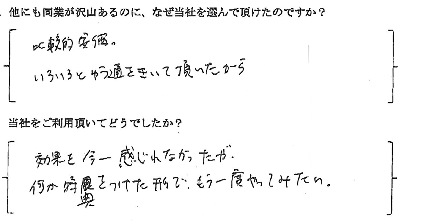 他にも同業が沢山あるのに、なぜ当社を選んで頂けたのですか？
比較的安価。
いろいろとゆう通をきいて頂いたから
当社をご利用頂いてどうでしたか？
効果を今一感じれなかったが、
何か特典をつけた形で、もう一度やってみたい。